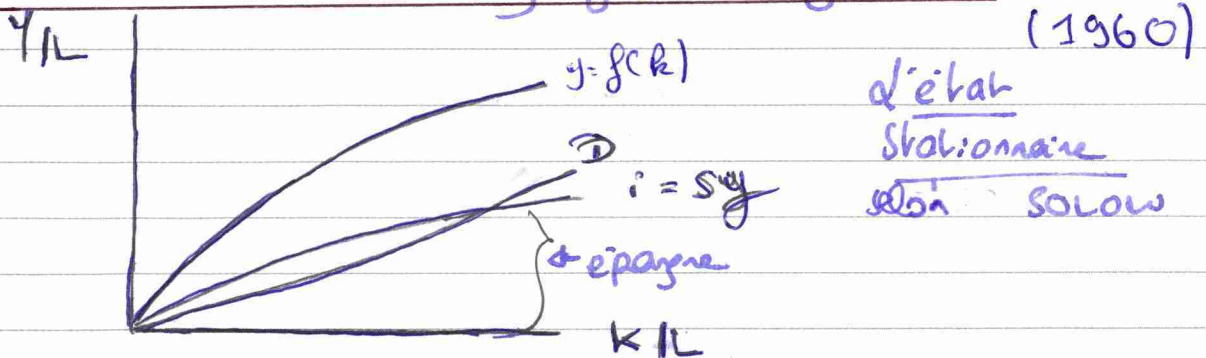 Y/L
(1960)
y=f(k)
L'état
Stationnaire
selon SOLOW
D
i = sy
épargne
K/L